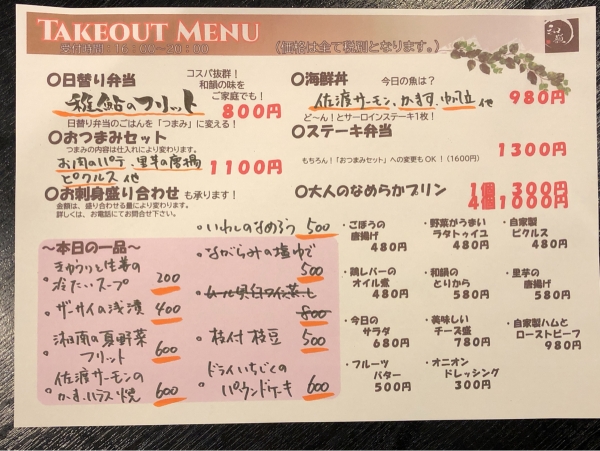 TAKEOUT MENU
受付時間 16:00~20:00 (価格は全て税別となります。)
和韻
○日替り弁当 コスパ抜群!
和韻の味を
ご家庭でも!
稚鮎のフリット 800円
日替り弁当のごはんを「つまみ」に変える!
○おつまみセット
つまみの内容は仕入れにより変わります。
お肉のパテ、里芋の唐揚
ピクルス 他 1100円
○お刺身盛り合わせ も承ります!
金額は、盛り合わせる量により変わります。
詳しくは、お電話にてお問合せ下さい。
○海鮮丼 今日の魚は?
佐渡サーモン、かます、帆立 他 980円
ど~ん!とサーロインステーキ1枚!
○ステーキ弁当
1300円
もちろん!「おつまみセット」への変更もOK!(1600円)
○大人のなめらかプリン 1個 300円
4個1000円
~本日の一品~
・きゅうりと生姜の
冷たいスープ 200
・ザーサイの浅漬 400
・湘南の夏野菜
フリット 600
・佐渡サーモンの
かま、ハラス焼 600
・いわしのなめろう 500
・ながらみの塩ゆで
500
・ムール貝白ワイン蒸し
800
・枝付 枝豆 500
・ドライいちじくの
パウンドケーキ 600
・ごぼうの
唐揚げ
480円
・野菜がうまい
ラタトゥイユ
480円
・自家製
ピクルス
480円
・鶏レバーの
オイル煮
480円
・和韻の
とりから
580円
・里芋の
唐揚げ
580円
・今日の
サラダ
680円
・美味しい
チーズ盛
780円
・自家製ハムと
ローストビーフ
980円
・フルーツ
バター
500円
・オニオン
ドレッシング
300円